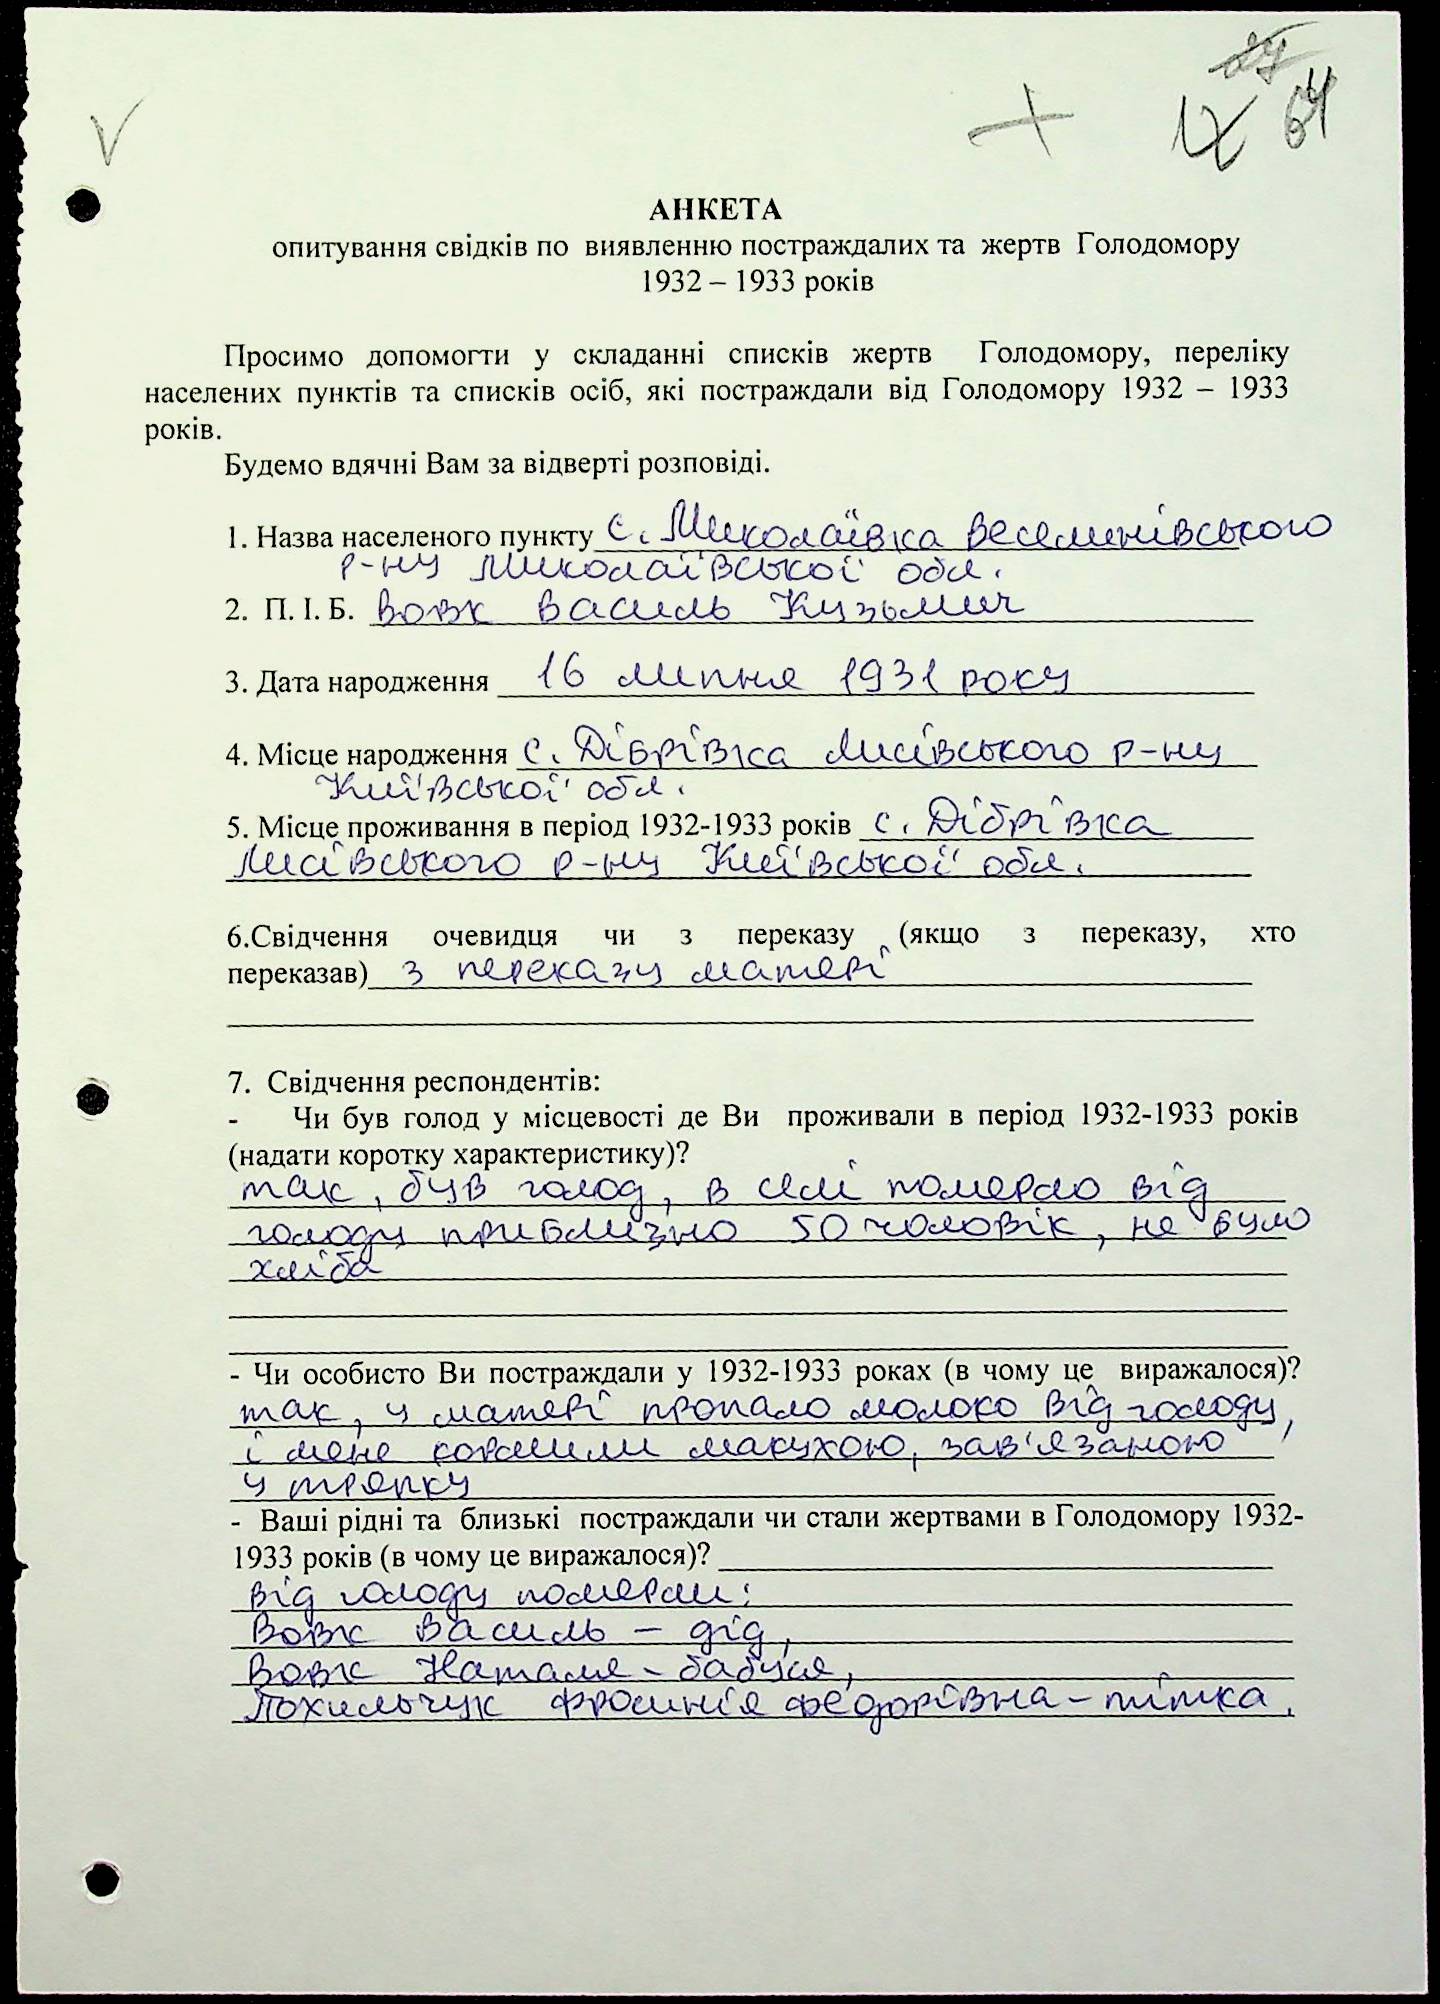 27
64
АНКЕТА
опитування свідків по виявленню постраждалих та жертв Голодомору
1932 – 1933 років
Просимо допомогти у складанні списків жертв Голодомору, переліку
населених пунктів та списків осіб, які постраждали від Голодомору 1932 – 1933
років.
Будемо вдячні Вам за відверті розповіді.
1. Назва населеного пункту с. Миколаївка Веселинівського
р-ну Миколаївської обл.
2. П. І. Б. Вовк Василь Кузьмич
3. Дата народження 16 липня 1931 року
4. Місце народження с. Дібрівка Лисівського р-ну
Київської обл.
5. Місце проживання в період 1932-1933 років с. Дібрівка
Лисівського р-ну Київської обл.
6.Свідчення очевидця чи з переказу (якщо з переказу, хто
переказав) з переказу матері
7. Свідчення респондентів:
- Чи був голод у місцевості де Ви проживали в період 1932-1933 років
(надати коротку характеристику)?
так, був голод, в селі померло від
голоду приблизно 50 чоловік, не було
хліба
- Чи особисто Ви постраждали у 1932-1933 роках (в чому це виражалося)?
так, у матері пропало молоко від голоду,
і мене кормили макухою, зав'язаною
у тряпку
- Ваші рідні та близькі постраждали чи стали жертвами в Голодомору 1932-
1933 років (в чому це виражалося)?
від голоду померли:
Вовк Василь – дід,
Вовк Наталя – бабуся,
Похильчук Фросинія Федорівна – тітка.